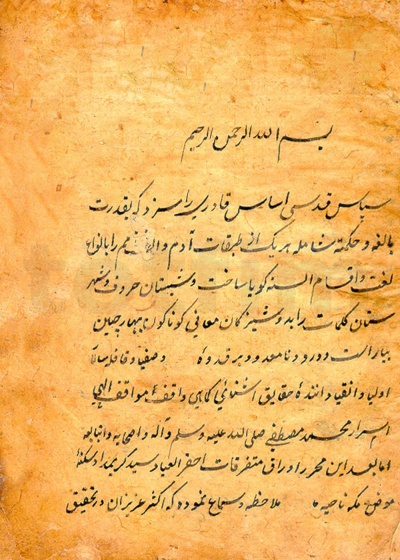 بسم الله الرحمن الرحیم
سپاس قدسی اساس قادری را سزد که بقدرت
بالغه و حکمة شامله هر یک از طبقات آدم و امم را بانواع
لغت و اقسام السنه گویا ساخت و شبستان حروف و شهر
ستان کلمات را بدوشیزگان معانی گوناگون بهار چین
بیاراست و درود نامعدود بر قدوهٔ وصفیا و قافله سالار
اولیا و اتقیا دانندهٔ حقایق اشنائی کماهی واقف مواقف الهی
اسرار محمد مصطفی صلی الله علیه وسلم و آله و اصحابه و اتباعه
اما بعد این محرر اوراق متفرقات احقر العباد سید کریمداد سکنهٔ
موضع ناحیه ملاحظه و سماع نموده که اکثر عزیزان در تحقیق